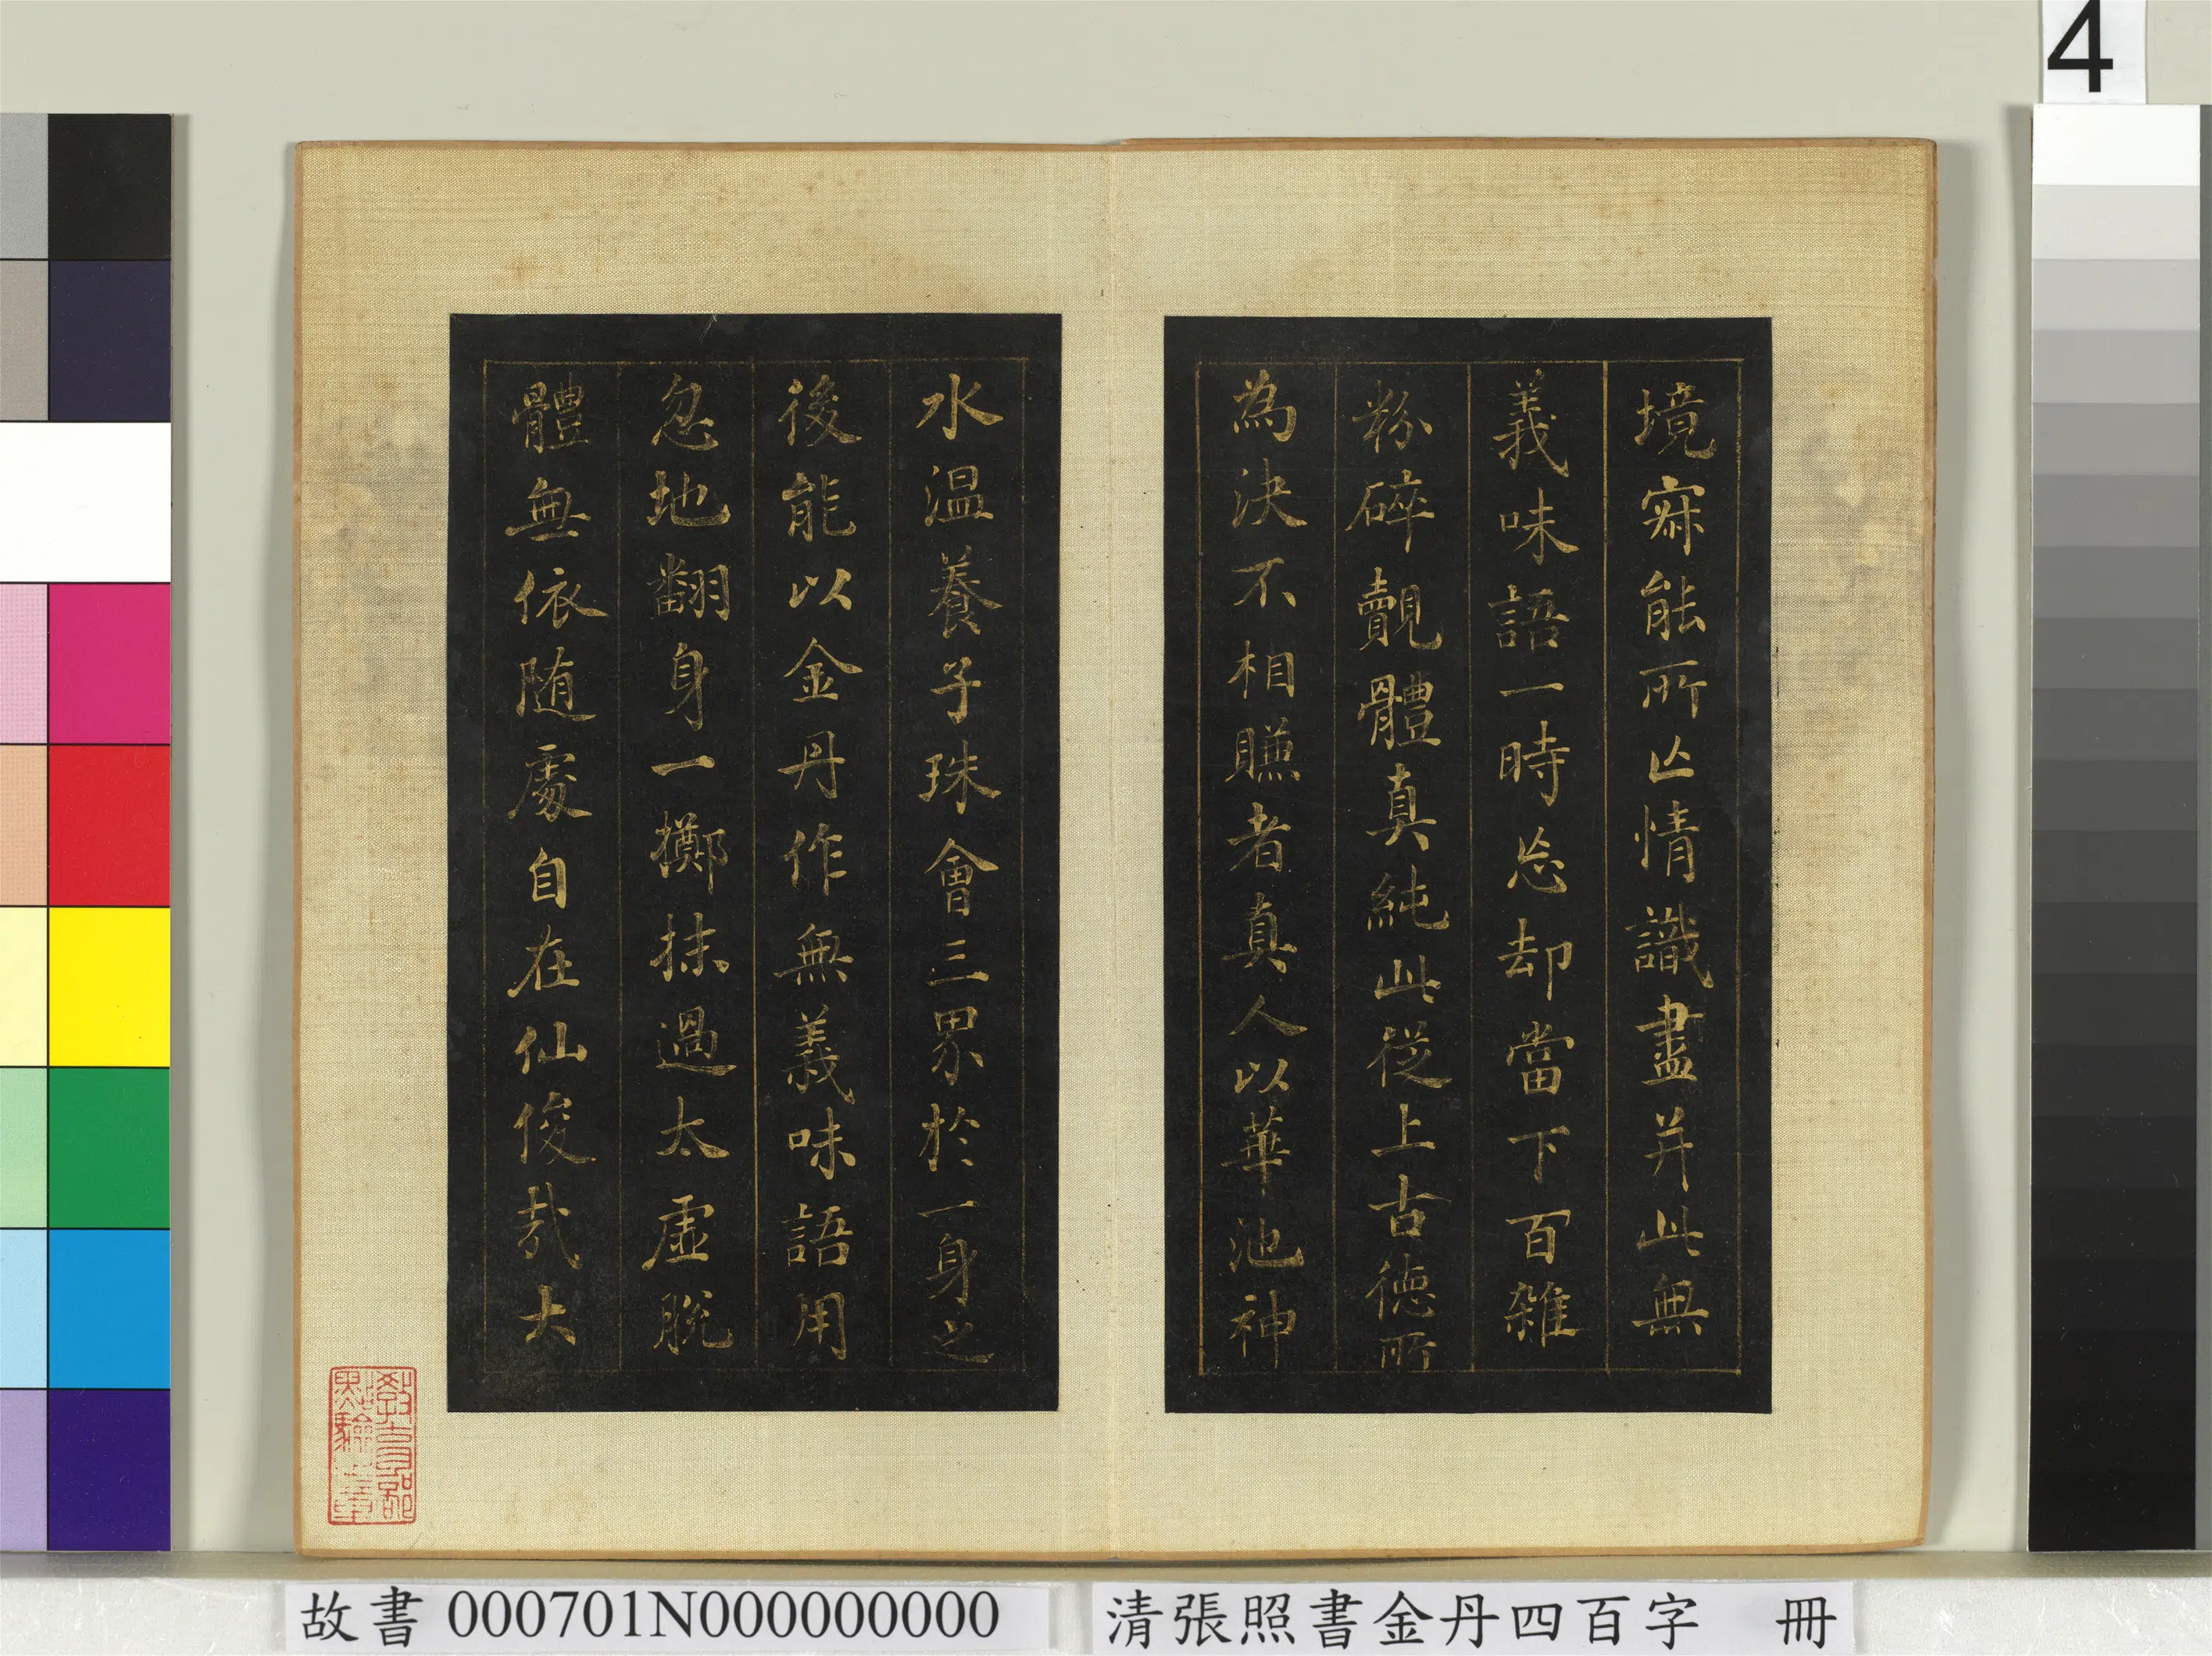 4
境寂能所亡情識盡并此無
義味語一時忘却當下百雜
粉碎覿體真純此從上古德所
為決不相賺者真人以華池神
水温養子珠會三界於一身之
後能以金丹作無義味語用
忽地翻身一擲抹過太虛脫
體無依随處自在仙俊哉大
教育部
點驗之章
故書 000701N000000000
清張照書金丹四百字 冊